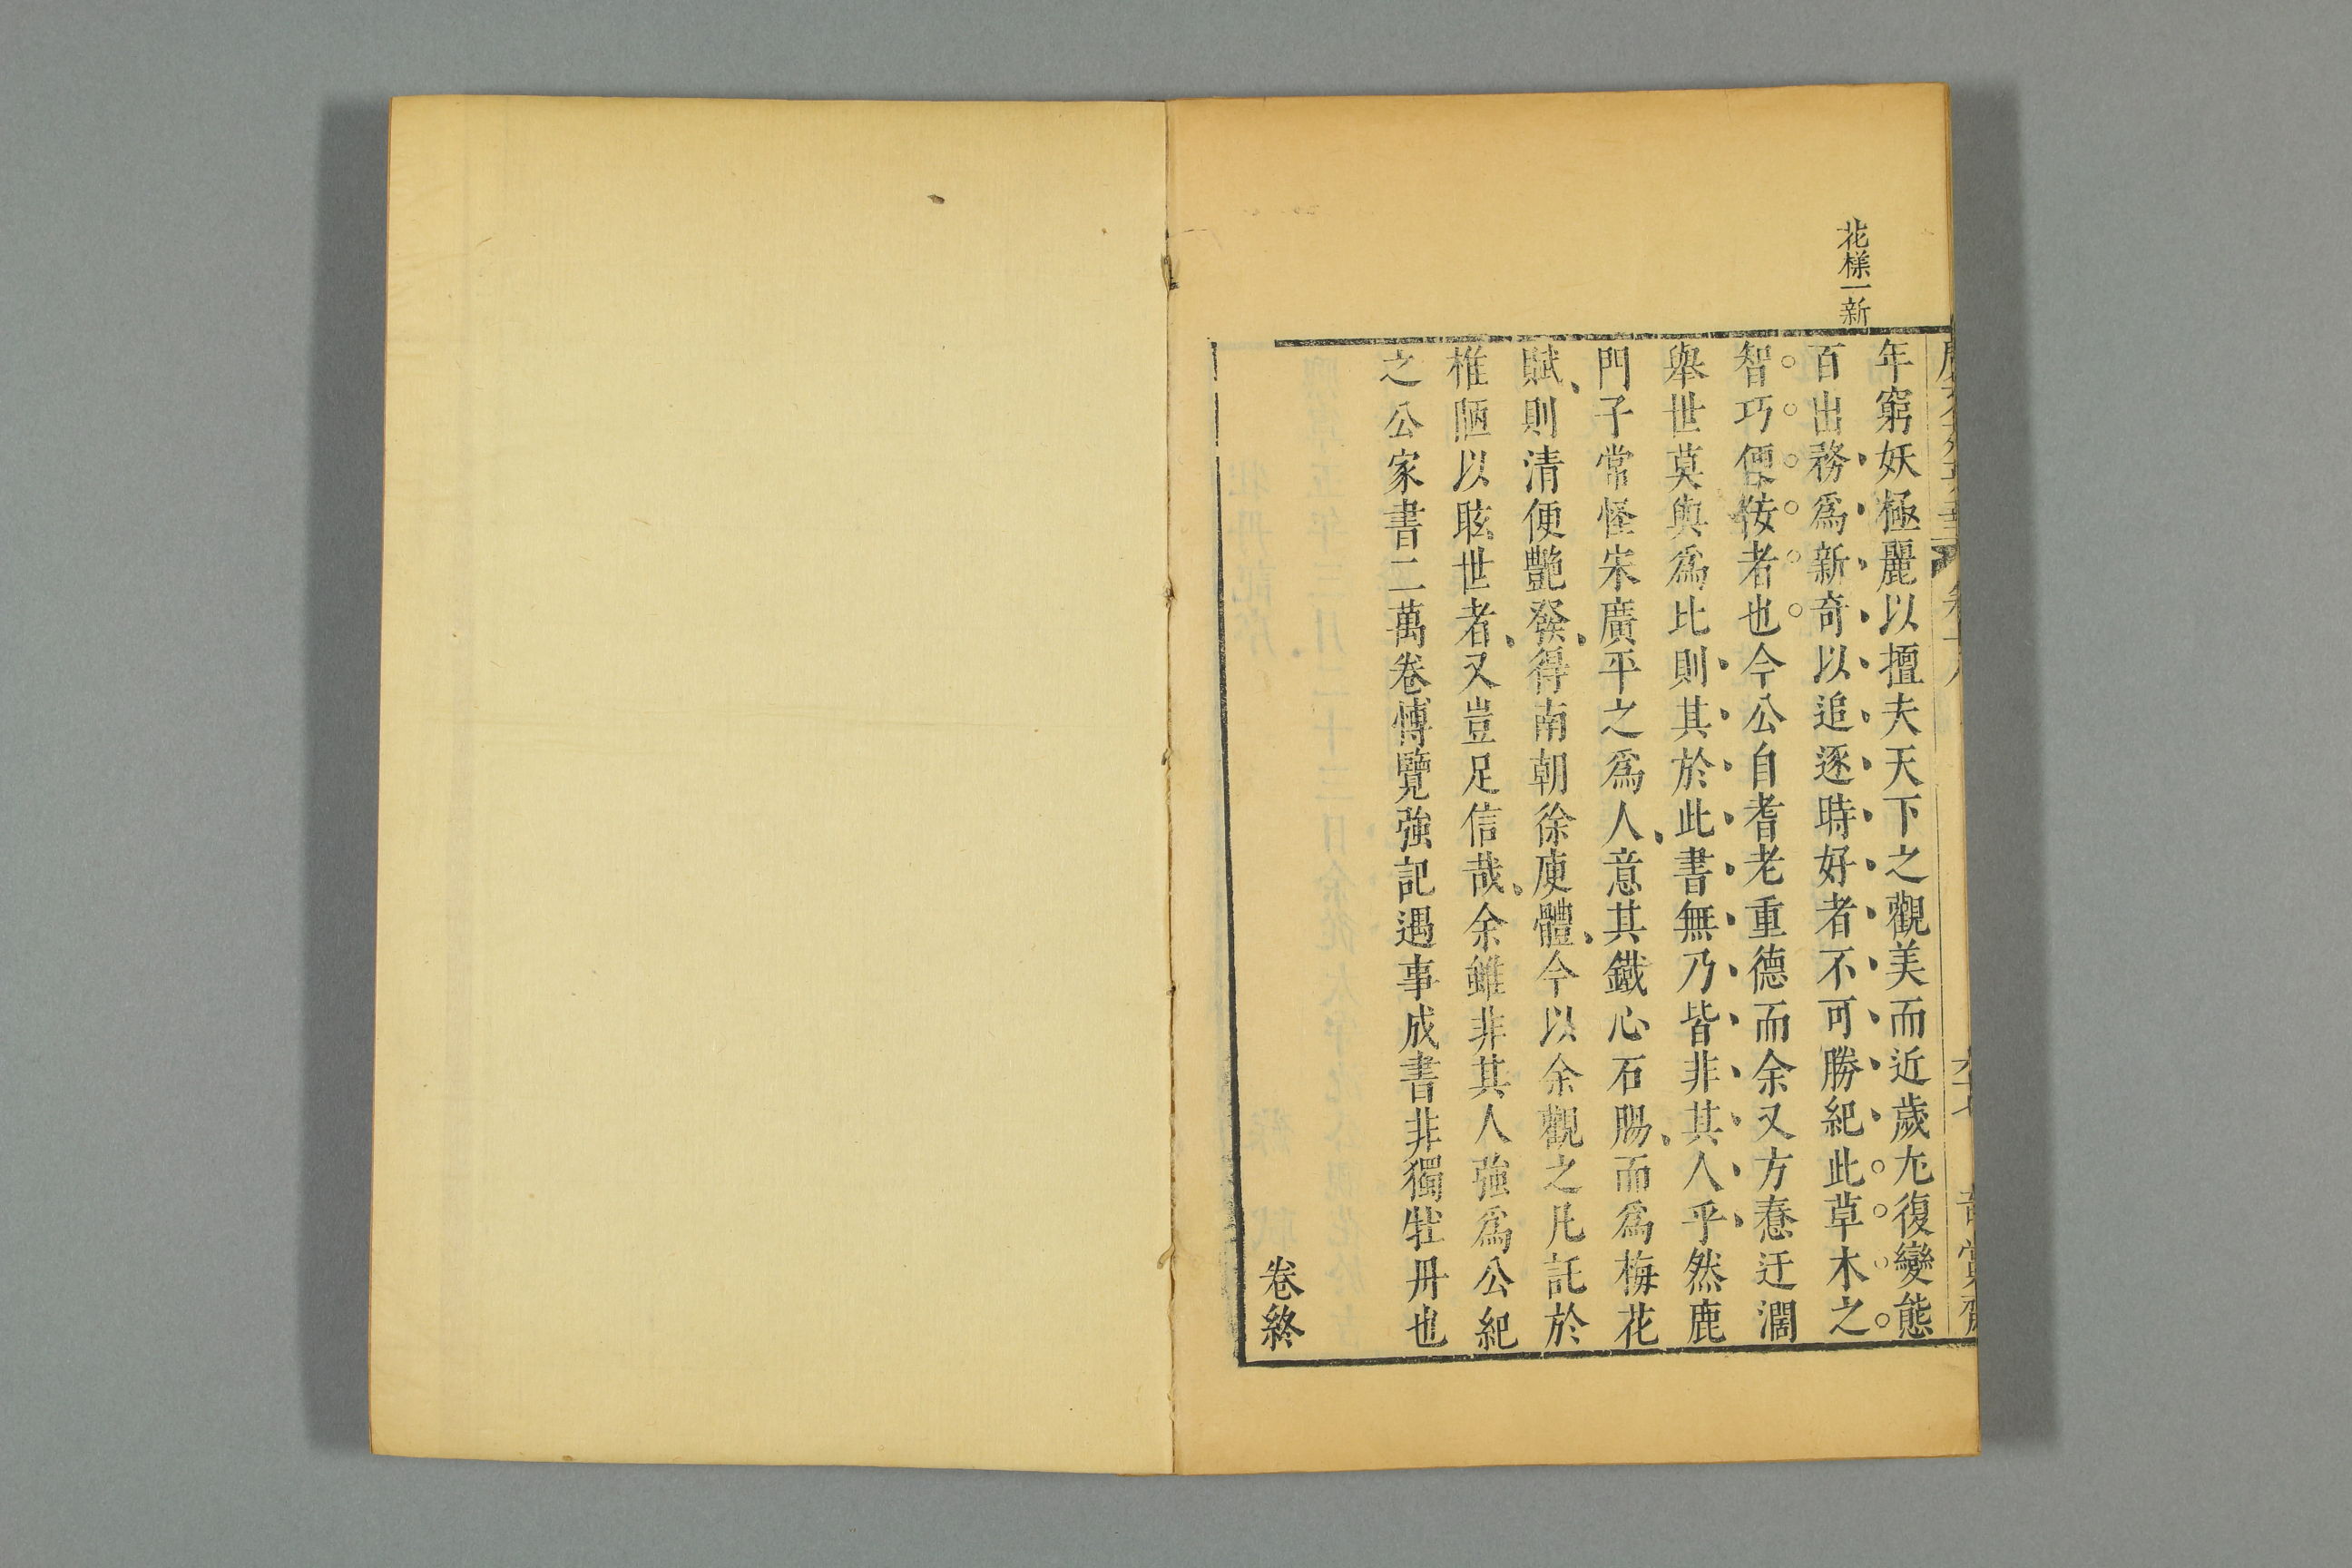 花樣一新
年窮妖極麗以擅夫天下之觀美而近歲尢復變態
百出務爲新奇以追逐時好者不可勝紀此草木之
智巧便佞者也今公自耆老重德而余又方惷迂濶
舉世莫與爲比則其於此書無乃皆非其人乎然鹿
門子常怪宋廣平之爲人意其鐵心石腸而爲梅花
賦則清便艷發得南朝徐庾體今以余觀之凡託於
椎陋以眩世者又豈足信哉余雖非其人強爲公紀
之公家書二萬卷博覽強記遇事成書非獨牡丹也
卷終